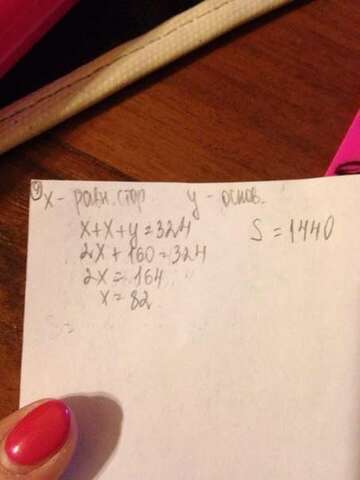 9) x - равн. стор y - основ.
x+x+y=324 S=1440
2x+160=324
2x=164
x=82
S=